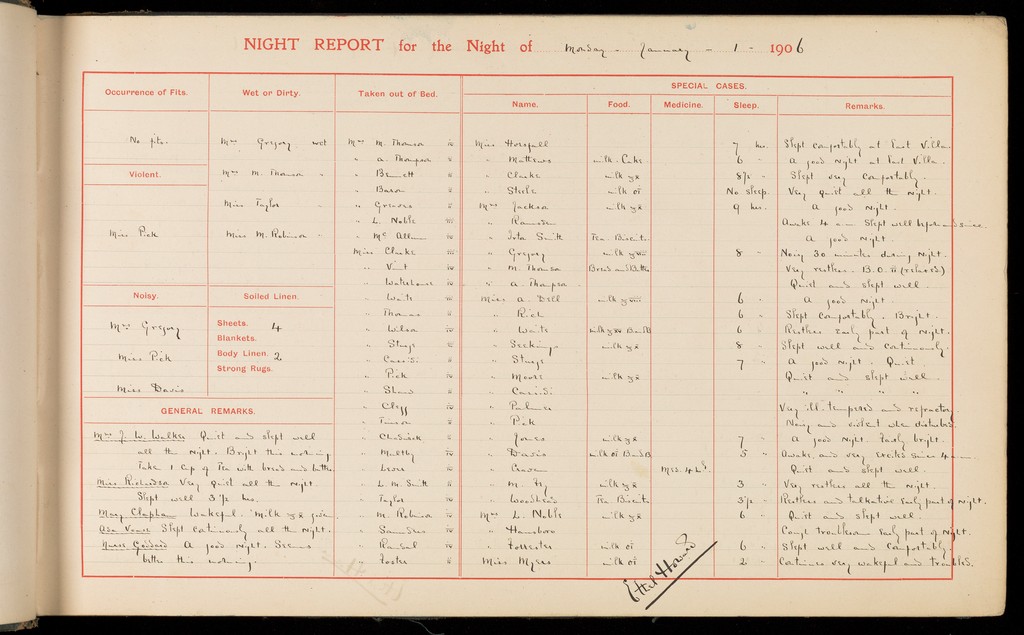 NIGHT REPORT for the Night of Monday - January - 1 - 1906
Occurrence of Fits.
No fits.
Violent.
Miss Pick
Noisy.
Mrs Gregory
Miss Pick
Miss Davis
Wet or Dirty.
Mrs Gregory wet
Mrs M. Thomson "
Miss Taylor "
Miss M. Robinson "
Soiled Linen.
Sheets. 4
Blankets.
Body Linen. 2
Strong Rugs.
GENERAL REMARKS.
Mrs J. W. Walker Quiet and slept well
all the night. Bright this morning
Take 1 cup of Tea with bread and butter.
Miss Richardson Very quiet all the night.
Slept well 3 1/2 hrs.
Mary Clapham Wakeful. Milk given
Slept continuously all the night.
Nurse Goddard A good night. Seems
better this morning.
Taken out of Bed.
Mrs M. Thomson iv
" A. Thompson ii
" Bennett ii
" Baron ii
" Greaves ii
" L. Noble iii
" Mc Allum iv
Miss Clarke iii
" Vint iv
" Waterhouse iv
" Waite iii
" Thomas ii
" Wilson iv
" Sturgs ii
" Cassidi ii
" Pick iv
" Shaw ii
" Clegg iv
" iv
" Chadwick ii
" Maltby iv
" iv
" L. M. Smith ii
" Taylor iv
" M. Robinson iv
" Saunders iv
" iv
" Foster ii
SPECIAL CASES.
Name. Food. Medicine. Sleep. Remarks.
Miss Horsfall 7 hrs. Slept comfortably at East Villa
" Mathews milk. Cake 6 " A good night at East Villa.
" Clarke milk 8 1/2 " Slept very comfortably.
" Steele milk No sleep. Very quiet all the night.
Mrs Jackson milk 9 hrs. A good night.
" Ramsden Awake 4 am Slept well before and since.
" Smith Tea. Biscuits A good night.
" Gregory milk 8 " Noisy 30 minutes during night.
" M. Thomson Bread and Butter Very restless. B.O. ii (relaxed)
" A. Thompson Quiet and slept well.
Miss A. Dell milk 6 " A good night.
" Rich 6 " Slept comfortably. Bright.
" Waite milk B and B 6 " Restless early part of night.
" Seekings milk 8 " Slept well and continuously.
" Sturgs 7 " A good night. Quiet
" Moore milk Quiet and slept well
" Cassidi " " " "
" Palmer Very ill-tempered and refractory
" Pick Noisy and violent when disturbed.
" Jones milk 7 " A good night. Fairly bright.
" Davis milk B and B 5 " Awake and very excited since 4 am
" Craven Quiet and slept well.
" M. Fry milk 3 " Very restless all the night.
" Woodhead Tea Biscuits 3 1/2 " Restless and talkative early part of night.
Mrs L. Noble milk 6 " Quiet and slept well.
" Hansboro Cough troublesome early part of night.
" Forrester milk 6 " Slept well and comfortably.
Miss Myers milk 2 " Continues very wakeful and troubled.
Ethel Howard